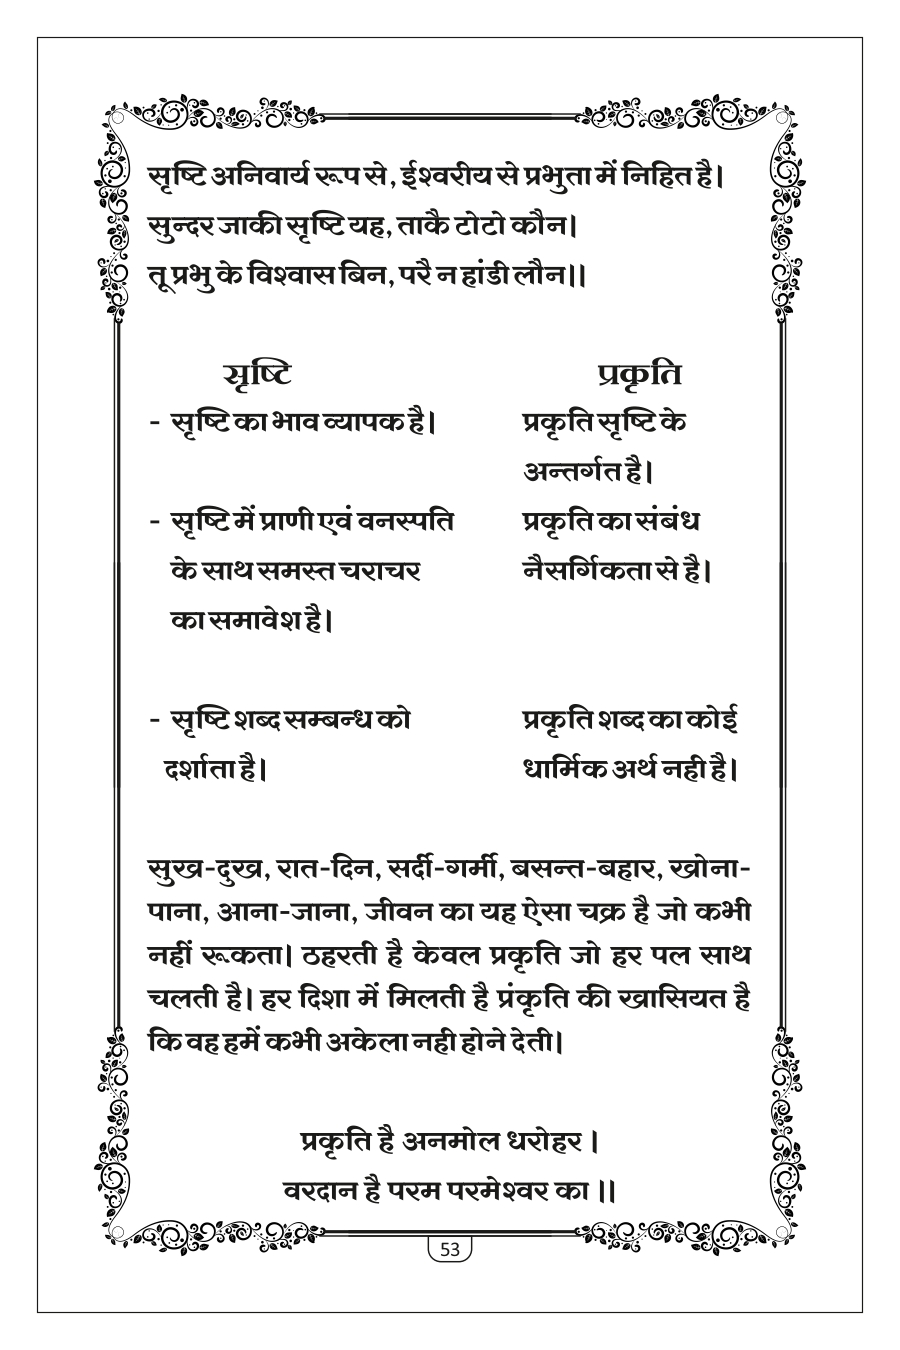 सृष्टि अनिवार्य रूप से, ईश्वरीय से प्रभुता में निहित है।
सुन्दर जाकी सृष्टि यह, ताकै टोटो कौन।
तू प्रभु के विश्वास बिन, परै न हांडी लौन।।
सृष्टि प्रकृति
- सृष्टि का भाव व्यापक है। प्रकृति सृष्टि के
अन्तर्गत है।
- सृष्टि में प्राणी एवं वनस्पति प्रकृति का संबंध
के साथ समस्त चराचर नैसर्गिकता से है।
का समावेश है।
- सृष्टि शब्द सम्बन्ध को प्रकृति शब्द का कोई
दर्शाता है। धार्मिक अर्थ नही है।
सुख-दुख, रात-दिन, सर्दी-गर्मी, बसन्त-बहार, खोना-
पाना, आना-जाना, जीवन का यह ऐसा चक्र है जो कभी
नहीं रूकता। ठहरती है केवल प्रकृति जो हर पल साथ
चलती है। हर दिशा में मिलती है प्रंकृति की खासियत है
कि वह हमें कभी अकेला नही होने देती।
प्रकृति है अनमोल धरोहर।
वरदान है परम परमेश्वर का ।।
53